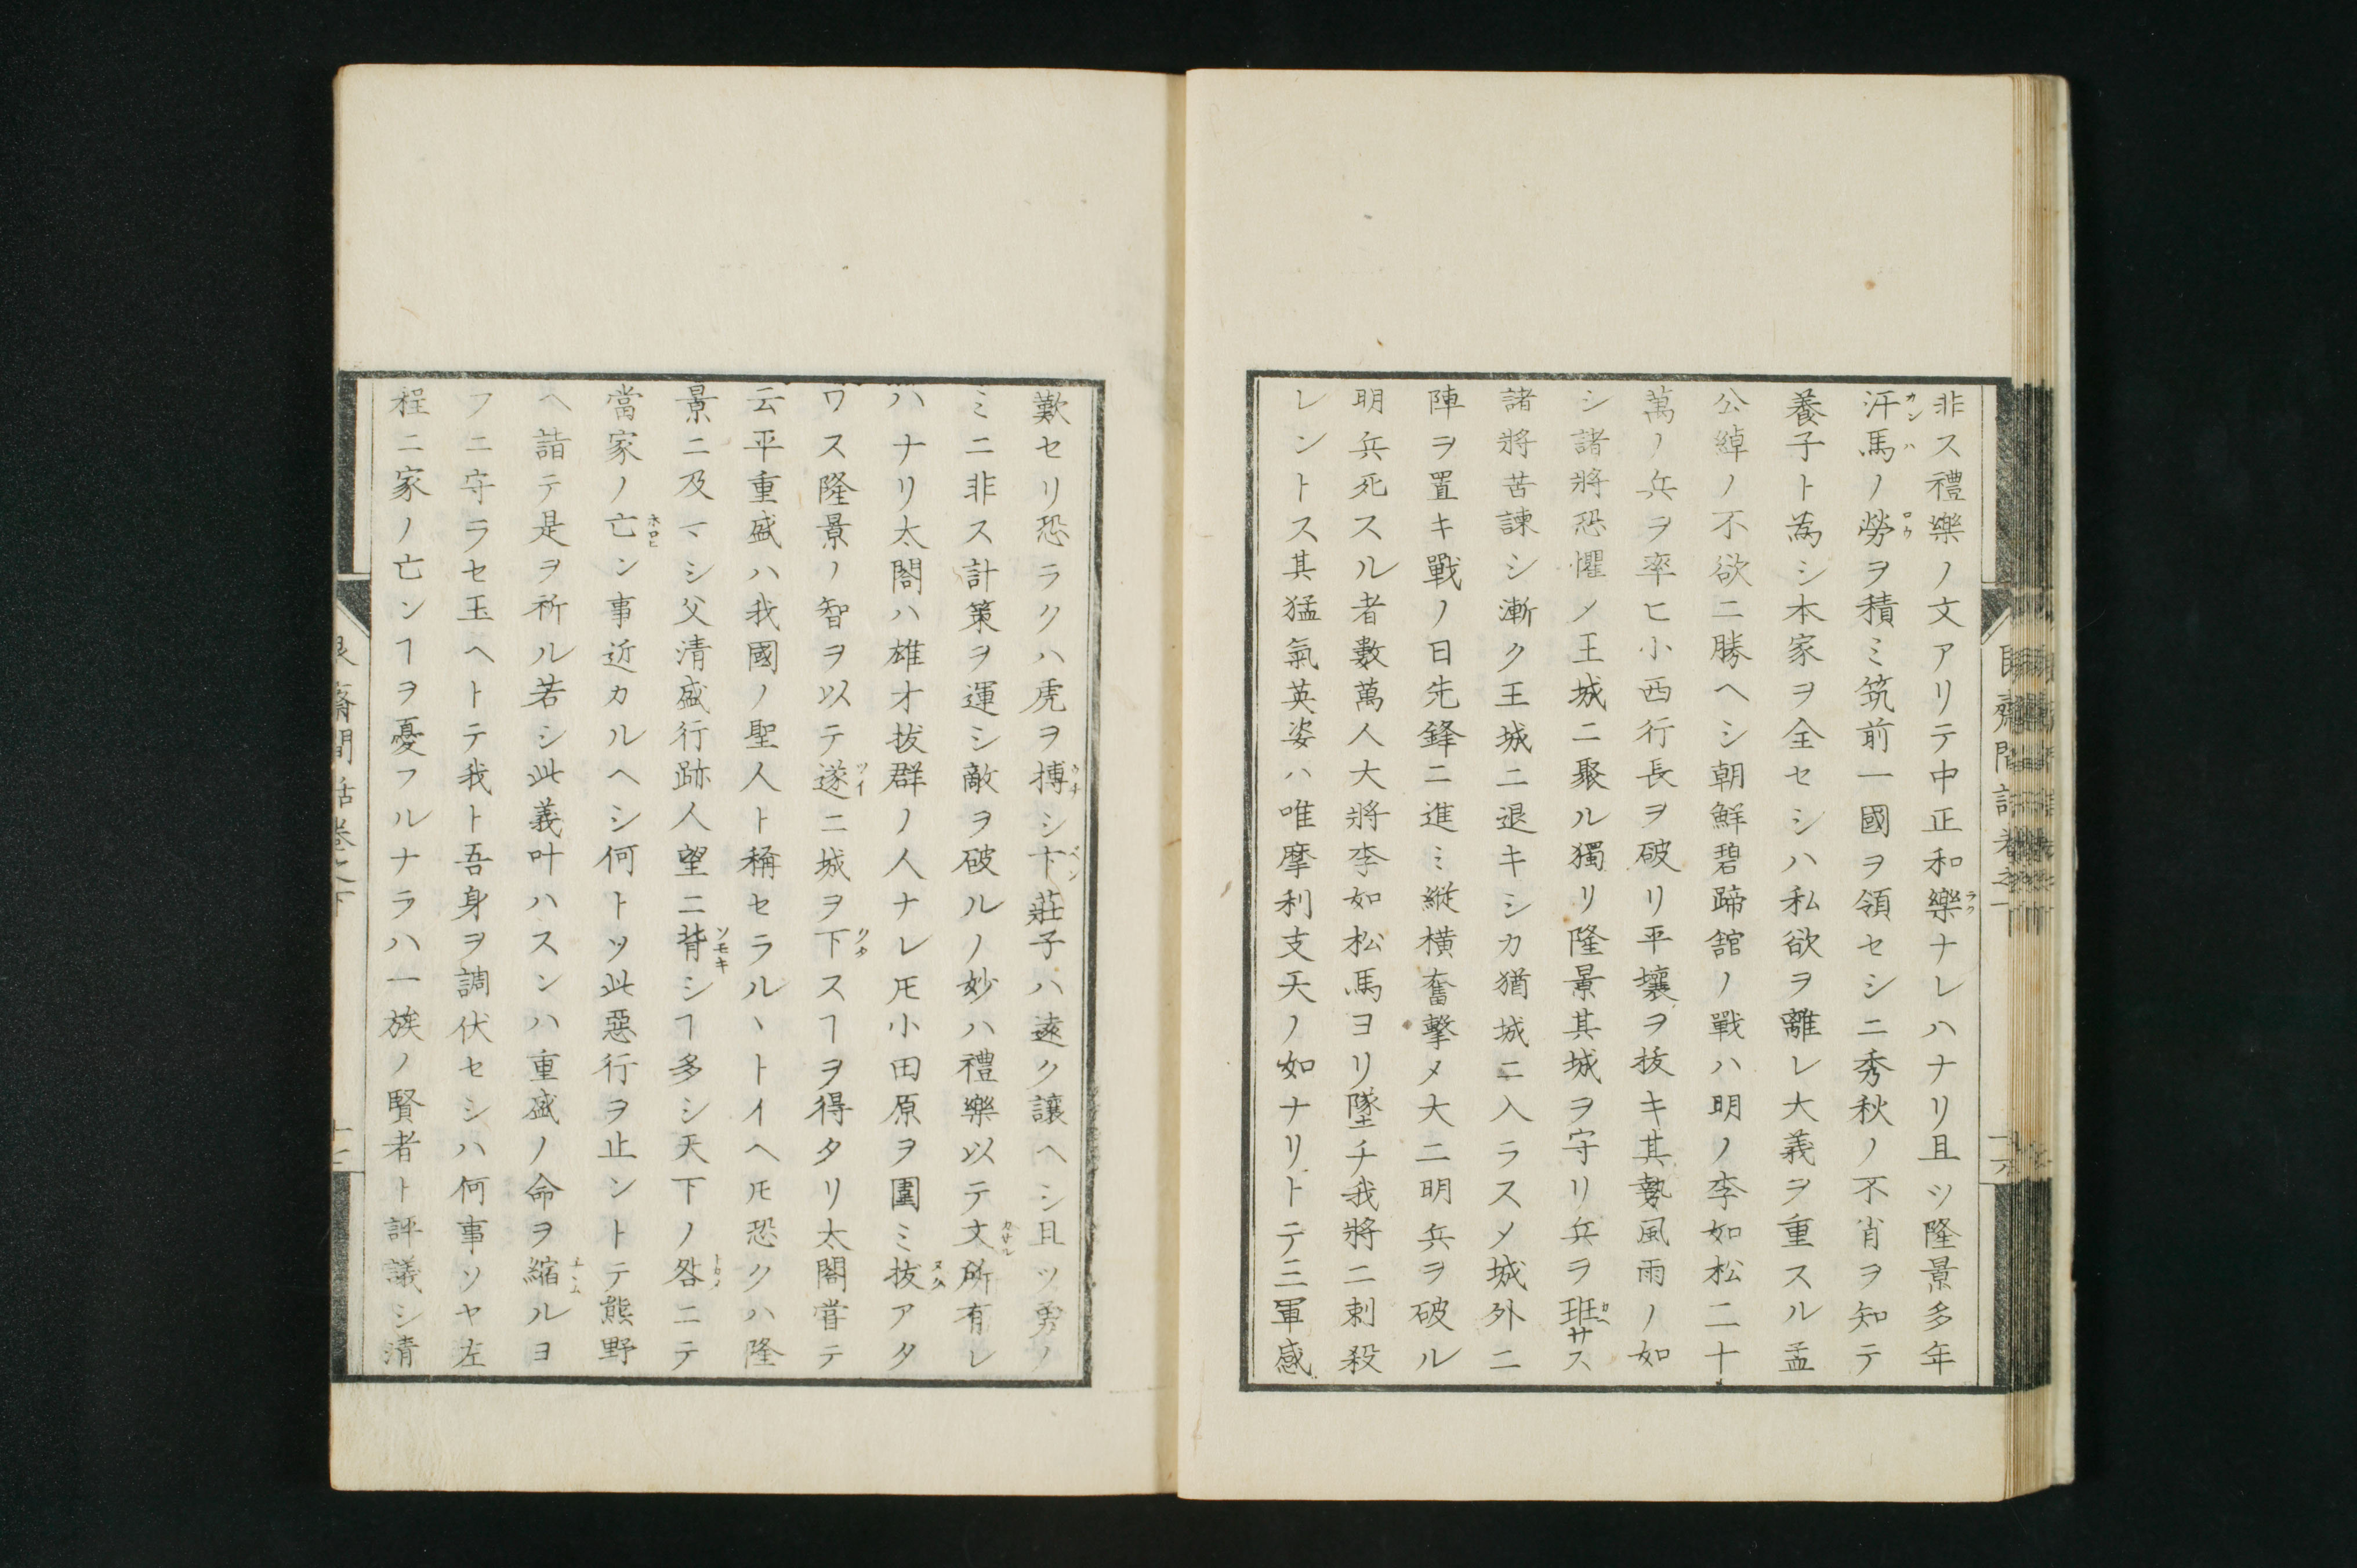 非ス禮樂ノ文アリテ中正和樂ナレハナリ且ツ隆景多年
汗馬ノ勞ヲ積ミ筑前一國ヲ領セシニ秀秋ノ不肖ヲ知テ
養子ト為シ本家ヲ全セシハ私欲ヲ離レ大義ヲ重スル孟
公綽ノ不欲ニ勝ヘシ朝鮮碧蹄舘ノ戰ハ明ノ李如松二十
萬ノ兵ヲ率ヒ小西行長ヲ破リ平壤ヲ抜キ其勢風雨ノ如
シ諸將恐懼メ王城ニ聚ル獨リ隆景其城ヲ守リ兵ヲ班サス
諸將苦諫シ漸ク王城ニ退キシカ猶城ニ入ラスメ城外ニ
陣ヲ置キ戰ノ日先鋒ニ進ミ縱橫奮擊メ大ニ明兵ヲ破ル
明兵死スル者數萬人大將李如松馬ヨリ墜チ我將ニ刺殺
レントス其猛氣英姿ハ唯摩利支天ノ如ナリトテ三軍感
歎セリ恐ラクハ虎ヲ搏シ卞莊子ハ遠ク讓ヘシ且ツ勇ノ
ミニ非ス計策ヲ運シ敵ヲ破ルノ妙ハ禮樂以テ文所有レ
ハナリ太閤ハ雄才拔群ノ人ナレ𪜈小田原ヲ圍ミ抜アタ
ワス隆景ノ智ヲ以テ遂ニ城ヲ下スヿヲ得タリ太閤嘗テ
云平重盛ハ我國ノ聖人ト稱セラルヽトイヘ𪜈恐クハ隆
景ニ及ヘシ父清盛行跡人望ニ背シヿ多シ天下ノ咎ニテ
當家ノ亡ン事近カルヘシ何トソ此惡行ヲ止ントテ熊野
ヘ詣テ是ヲ祈ル若シ此義叶ハスンハ重盛ノ命ヲ縮ルヨ
フニ守ラセ玉ヘトテ我ト吾身ヲ調伏セシハ何事ソヤ左
程ニ家ノ亡ンヿヲ憂フルナラハ一族ノ賢者ト評議シ清
齋閒話卷之下